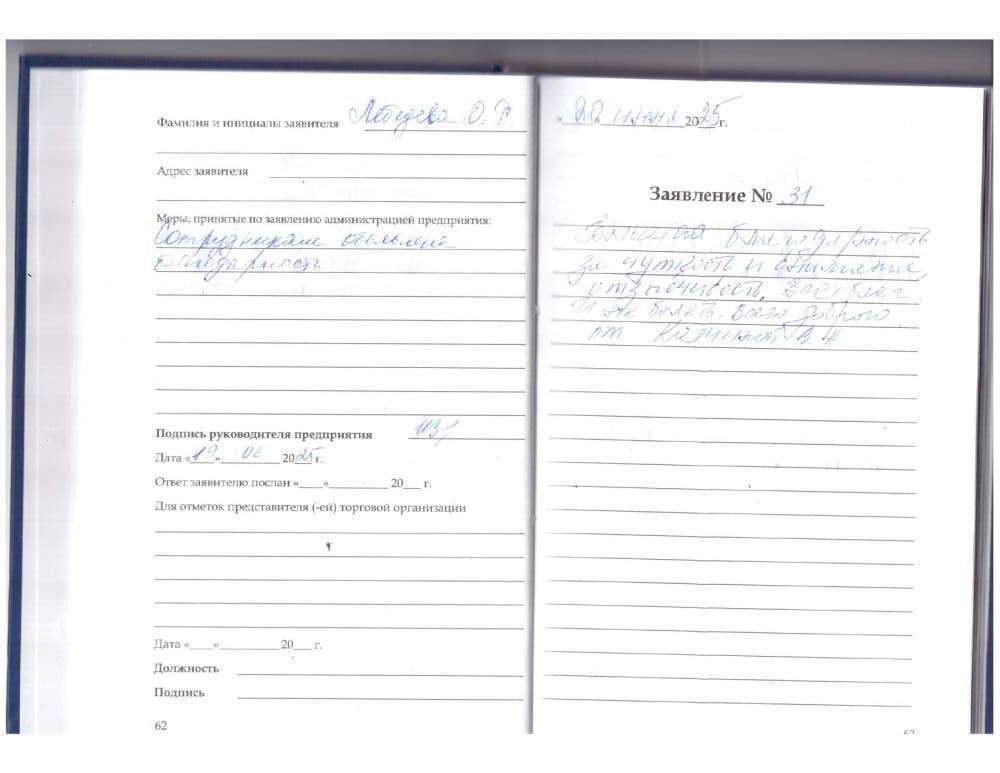 Фамилия и инициалы заявителя Лебедева О. Г.
Адрес заявителя
Меры, принятые по заявлению администрацией предприятия:
Сотрудникам объявлена
благодарность.
Подпись руководителя предприятия
Дата «19» 06 2025 г.
Ответ заявителю послан «____»__________ 20___ г.
Для отметок представителя (-ей) торговой организации
Дата «____»__________ 20___ г.
Должность
Подпись
62
22 июня 2025 г.
Заявление № 31
Большая благодарность
за чуткость и внимание,
отзывчивость. Всех благ
и не болеть. Всего доброго
от